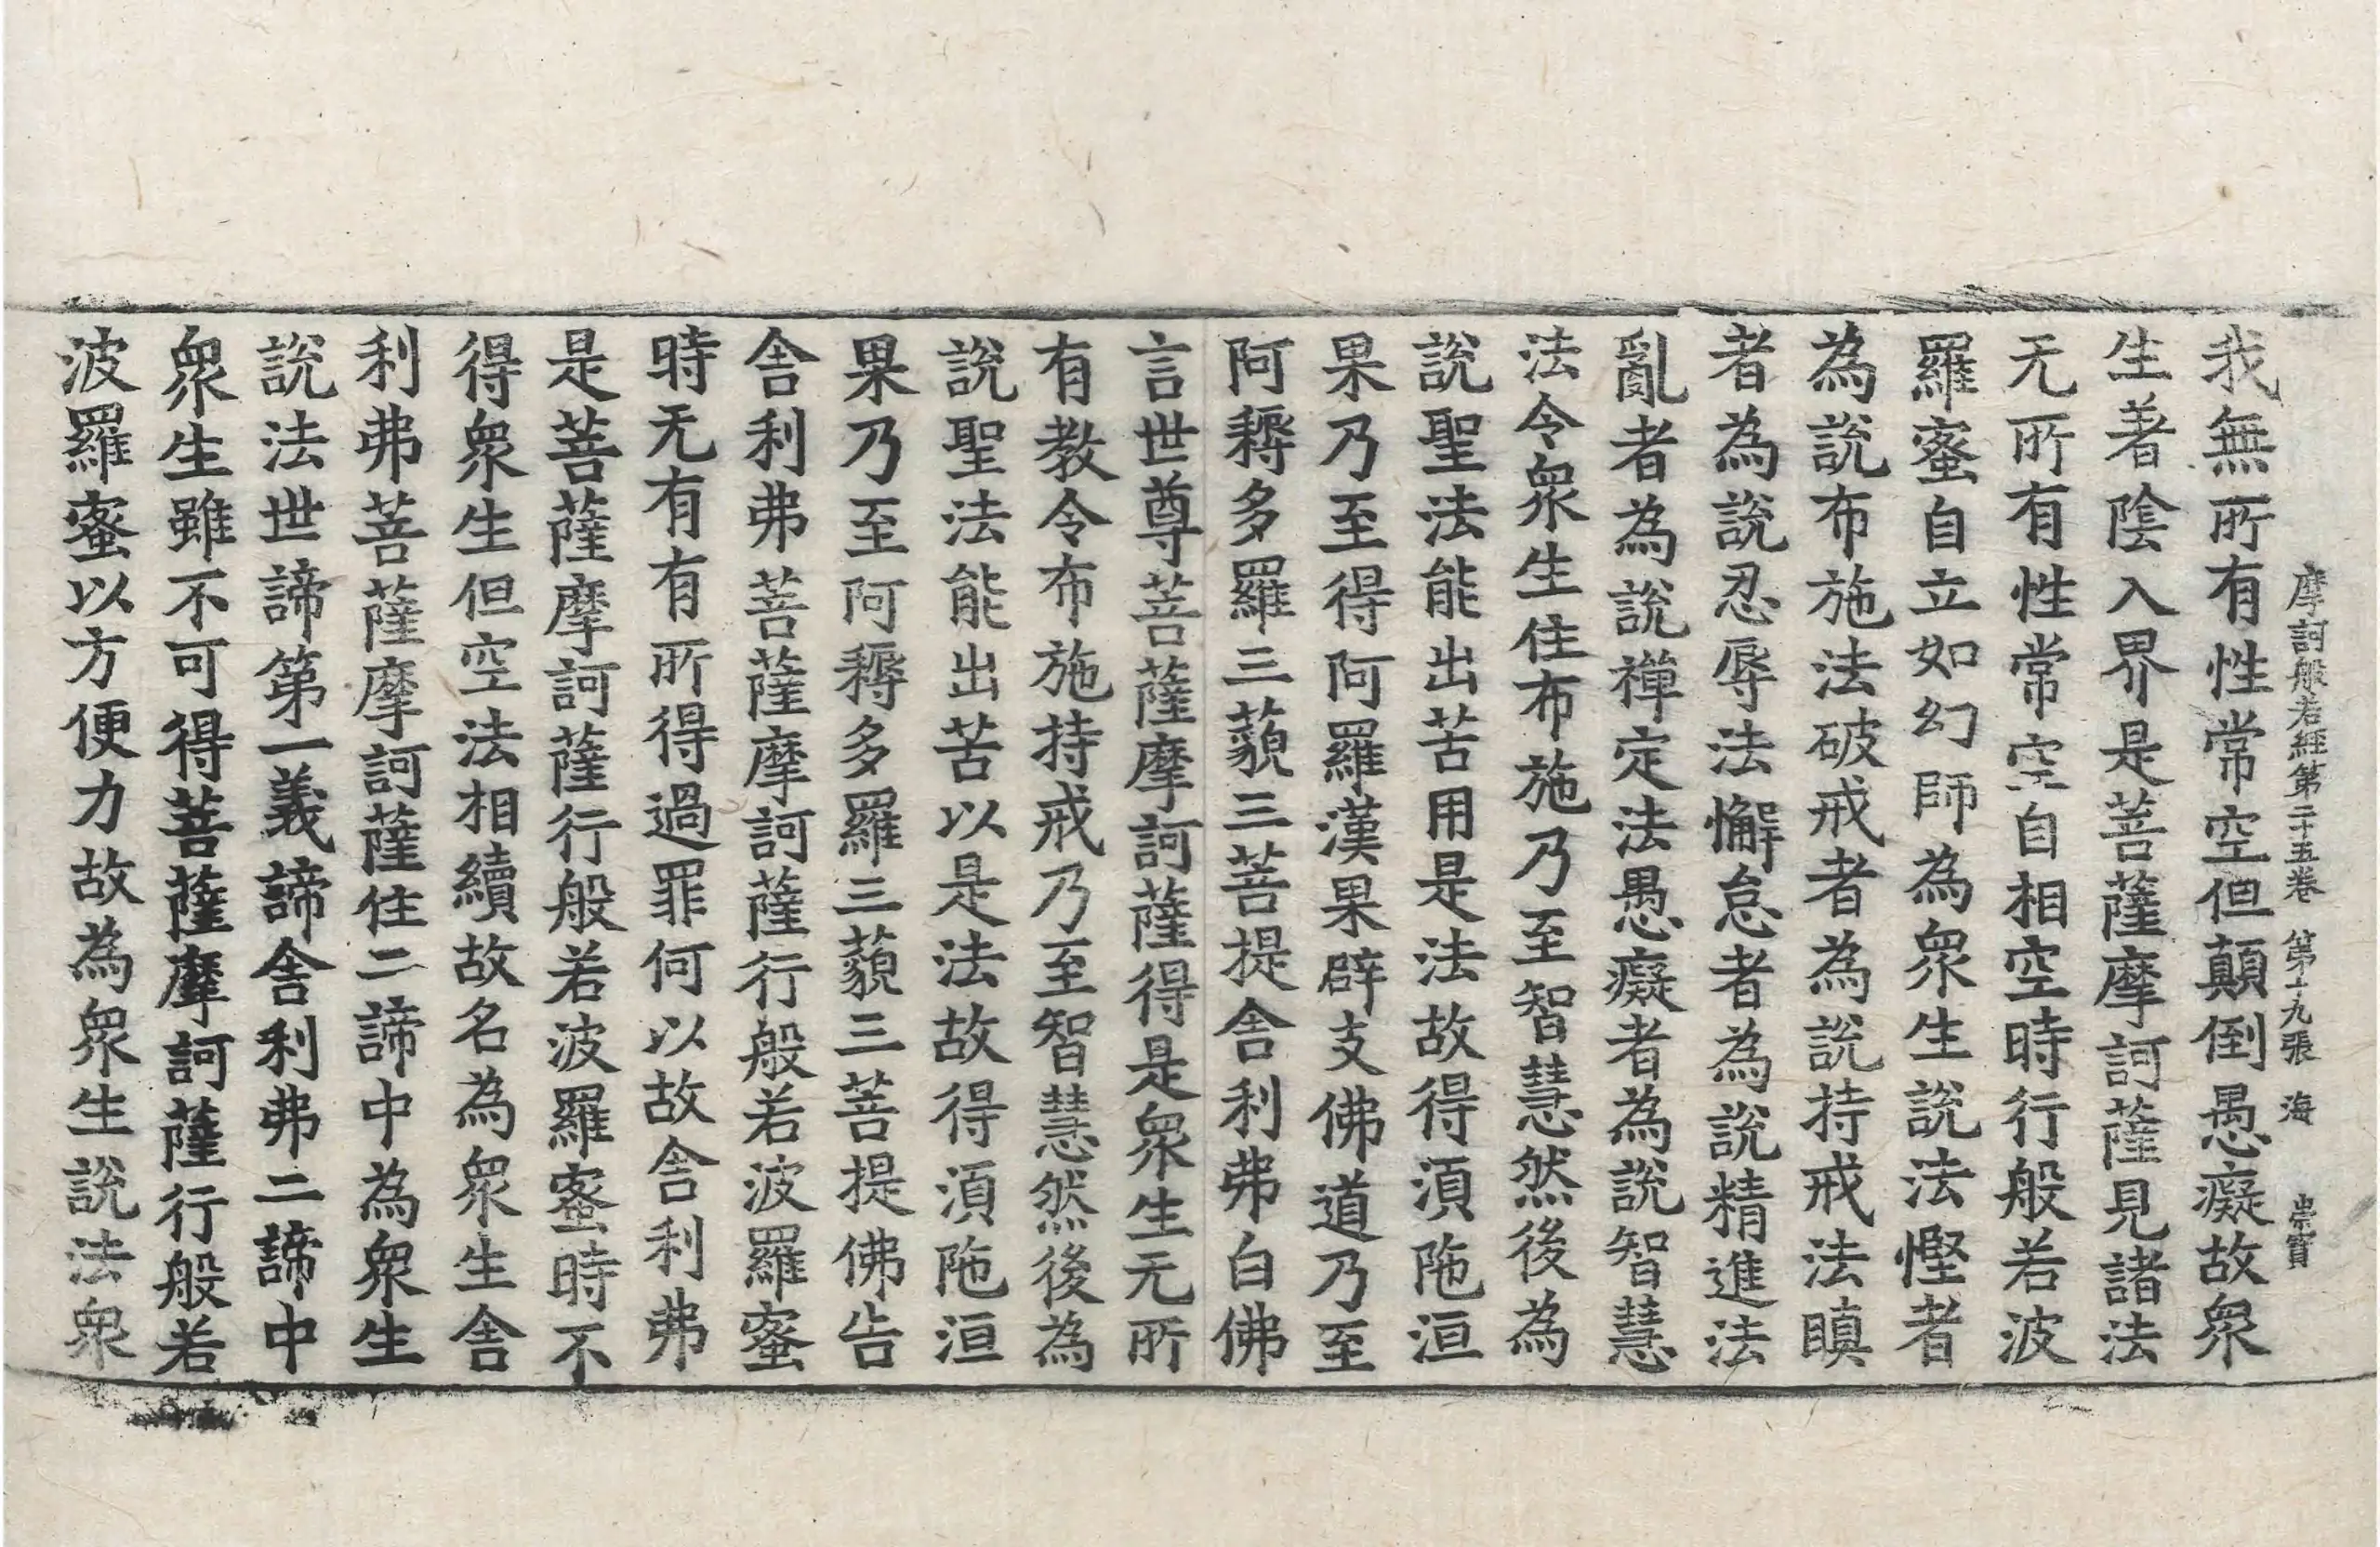 摩訶般若經第二十五卷 第十九張 海 崇寶
我無所有性常空但顚倒愚癡故衆
生著陰入界是菩薩摩訶薩見諸法
无所有性常空自相空時行般若波
羅蜜自立如幻師為衆生說法慳者
為說布施法破戒者為說持戒法瞋
者為說忍辱法懈怠者為說精進法
亂者為說禪定法愚癡者為說智慧
法令衆生住布施乃至智慧然後為
說聖法能出苦用是法故得湏陁洹
果乃至得阿羅漢果辟支佛道乃至
阿耨多羅三藐三菩提舍利弗白佛
言世尊菩薩摩訶薩得是衆生无所
有教令布施持戒乃至智慧然後為
說聖法能出苦以是法故得湏陁洹
果乃至阿耨多羅三藐三菩提佛告
舍利弗菩薩摩訶薩行般若波羅蜜
時无有有所得過罪何以故舍利弗
是菩薩摩訶薩行般若波羅蜜時不
得衆生但空法相續故名為衆生舍
利弗菩薩摩訶薩住二諦中為衆生
說法世諦第一義諦舍利弗二諦中
衆生雖不可得菩薩摩訶薩行般若
波羅蜜以方便力故為衆生說法衆